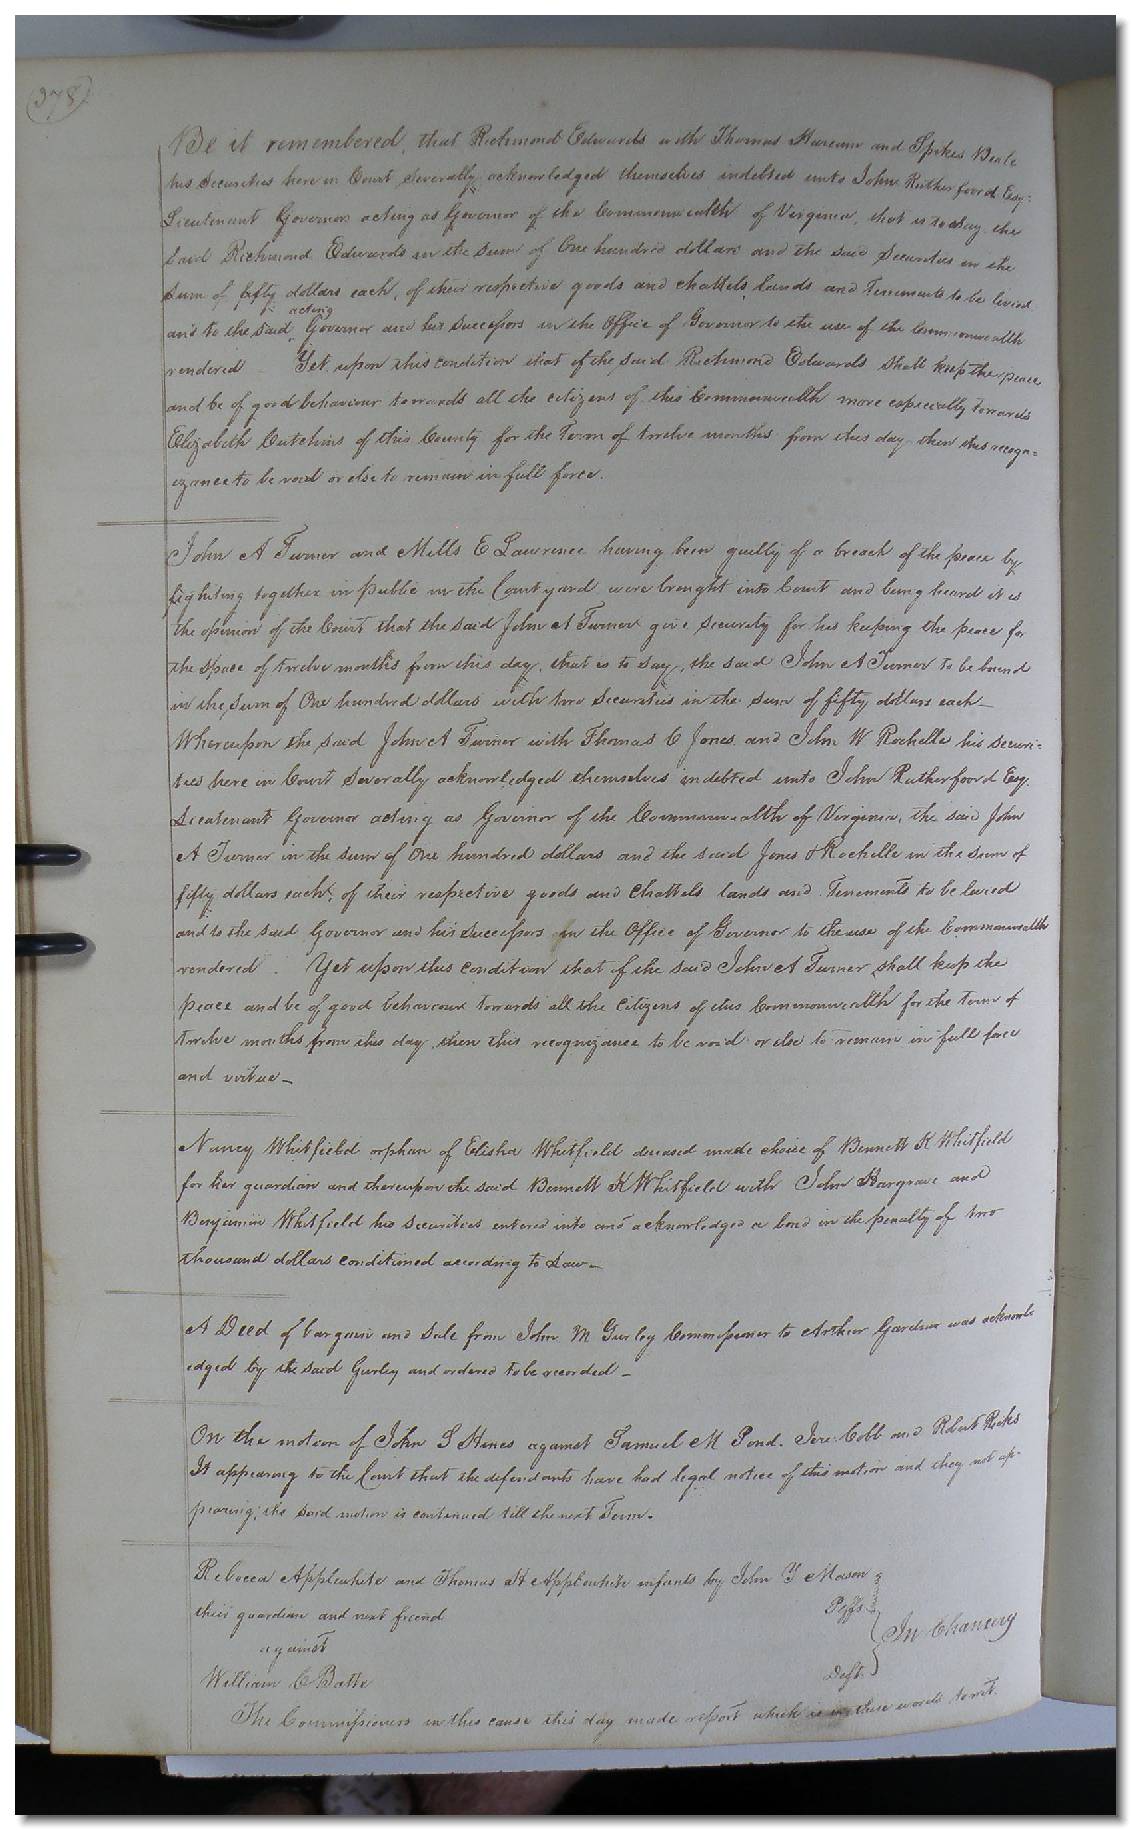 378
Be it remembered, that Richmond Edwards with Thomas and Spikes Beale
his Securities here in Court severally acknowledged themselves indebted unto John Rutherfoord Esqr.
Lieutenant Governor acting as Governor of the Commonwealth of Virginia, that is to say the
said Richmond Edwards in the sum of One hundred dollars and the said Securities in the
sum of fifty dollars each, of their respective goods and chattels, lands and Tenements to be levied
acting
and to the said Governor and his successors in the Office of Governor to the use of the Commonwealth
rendered Yet upon this condition that if the said Richmond Edwards shall keep the peace
and be of good behaviour towards all the citizens of this Commonwealth more especially towards
Elizabeth Cutchins of this County for the Term of twelve months from this day then this recogn=
izance to be void or else to remain in full force.
John A Turner and Mills E Lawrence having been guilty of a breach of the peace by
fighting together in public in the Court yard were brought into Court and being heard it is
the opinion of the Court that the said John A Turner give security for his keeping the peace for
the space of twelve months from this day, that is to say, the said John A Turner to be bound
in the sum of One hundred dollars with two securities in the sum of fifty dollars each_
Whereupon the said John A Turner with Thomas C Jones and John W Rochelle his securi=
ties here in Court severally acknowledged themselves indebted unto John Rutherfoord Esq.
Lieutenant Governor acting as Governor of the Commonwealth of Virginia, the said John
A Turner in the sum of One hundred dollars and the said Jones & Rochelle in the sum of
fifty dollars each, of their respective goods and chattels lands and Tenements to be levied
and to the said Governor and his successors in the Office of Governor to the use of the Commonwealth
rendered. Yet upon this condition that if the said John A Turner shall keep the
peace and be of good behaviour towards all the citizens of this Commonwealth for the term of
twelve months from this day then this recognizance to be void or else to remain in full force
and virtue_
Nancy Whitfield orphan of Elisha Whitfield deceased made choice of Bennett K Whitfield
for her guardian and thereupon the said Bennett K Whitfield with John Hargrave and
Benjamin Whitfield his securities entered into and acknowledged a bond in the penalty of two
thousand dollars conditioned according to Law_
A Deed of bargain and sale from John M Gurley Commissioner to Arthur Gardner was acknowl
edged by the said Gurley and ordered to be recorded_
On the motion of John S Hines against Samuel M Pond. Jere: Cobb and Robert Ricks
It appearing to the Court that the defendants have had legal notice of this motion and they not ap-
pearing, the said motion is continued till the next Term.
Rebecca Applewhite and Thomas H Applewhite infants by John Y Mason
their guardian and next friend Pltffs
against In Chancery
William C Batte Deft.
The Commissioners in this cause this day made report which is in these words towit.